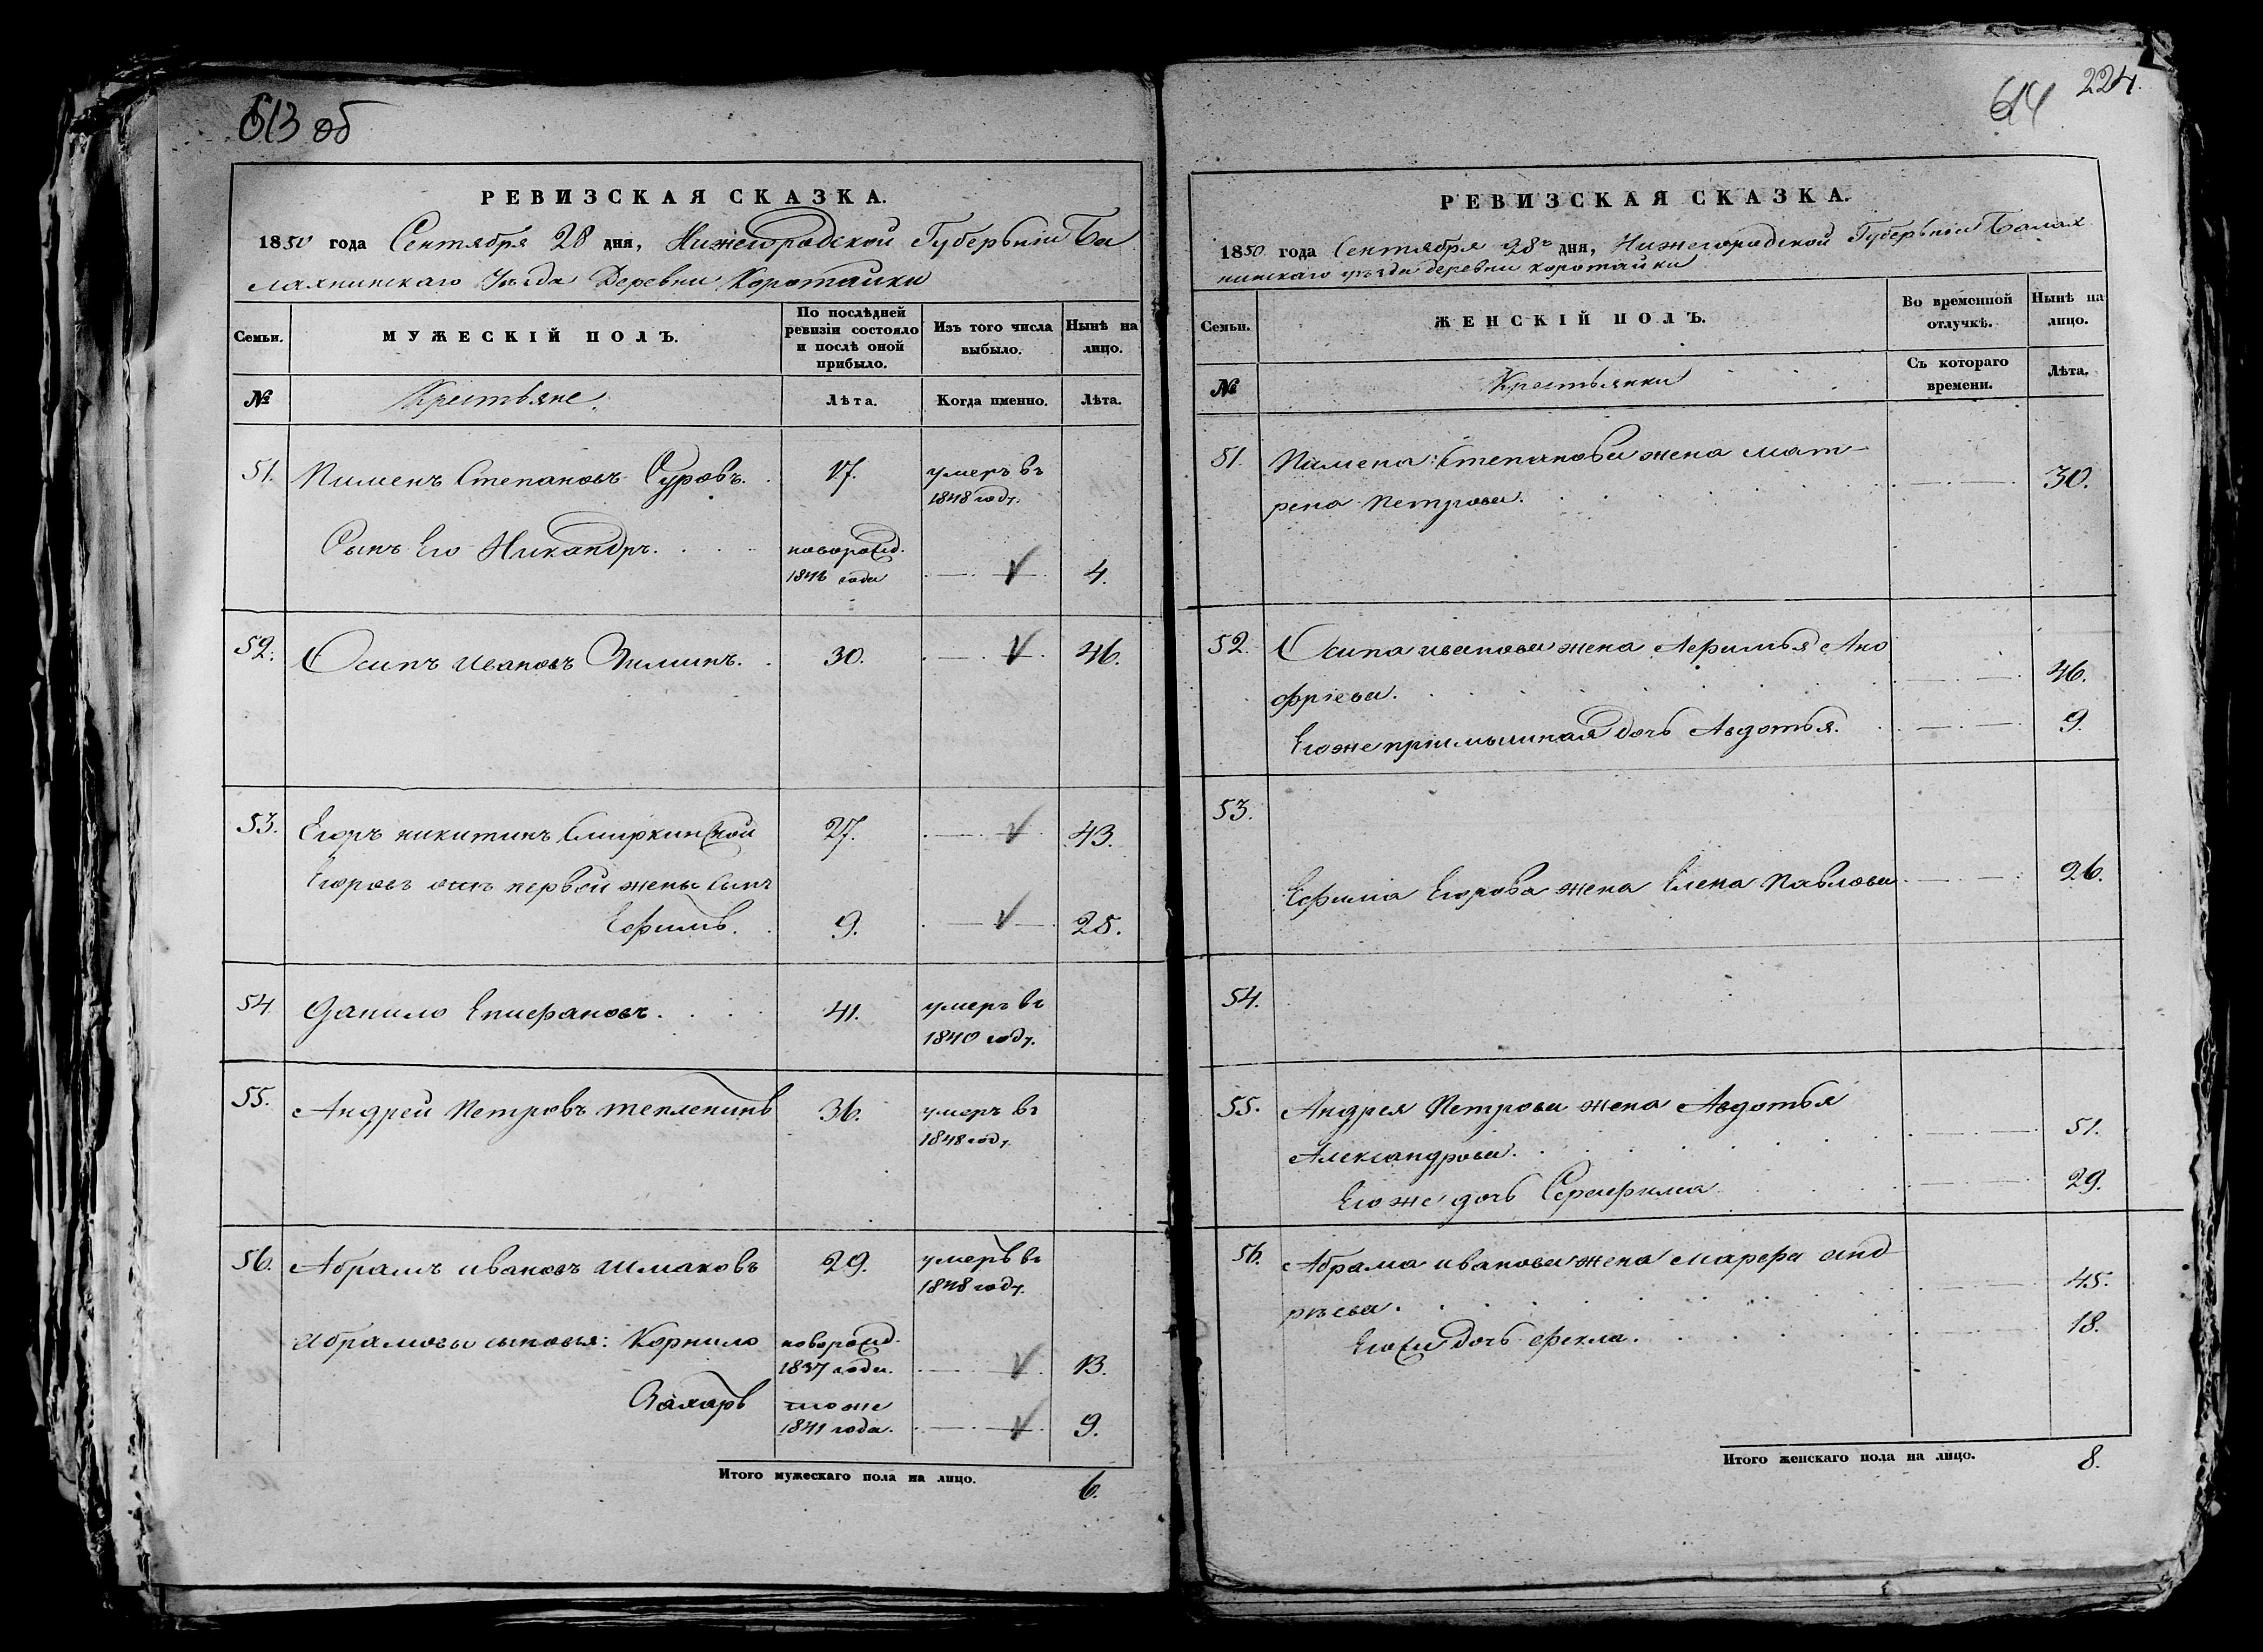 613 об
РЕВИЗСКАЯ СКАЗКА.
1850 года Сентября 28 дня, Нижегородской Губерьнiи Ба
лахнинскаго Уѣзда Деревни Коротайки
Семьи. МУЖЕСКIЙ ПОЛЪ. По послѣдней ревизiи состояло и послѣ оной прибыло. Изъ того числа выбыло. Нынѣ на лицо.
№ Крестьяне. Лѣта. Когда именно. Лѣта.
51. Пименъ Степановъ Суровъ. 17. умеръ въ
1848 году.
Сынъ Его Никандръ. новорожд.
1846 года 4.
52. Осипъ Ивановъ Зиминъ. 30. 46.
53. Егоръ никитинъ 27. 43.
Егоровъ отъ первой жены сынъ
Ефимъ. 9. 25.
54 Данило Епифановъ. 41. умеръ въ
1840 году.
55. Андрей Петровъ тепленинъ 36. умеръ въ
1848 году.
56. Абрамъ ивановъ Шмаковъ 29. умеръ въ
1848 году.
абрамовы сыновья: Корнило новорожд.
1837 года. 13.
Захаръ тоже
1841 года. 9.
Итого мужескаго пола на лицо. 6.
614 224.
РЕВИЗСКАЯ СКАЗКА.
1850 года Сентября 28ъ дня, Нижегородской Губерьнiи Балах
нинскаго уѣзда деревни коротайки
Семьи. ЖЕНСКIЙ ПОЛЪ. Во временной отлучкѣ. Нынѣ на лицо.
№ Крестьянки Съ котораго времени. Лѣта.
51. Пимена Степанова жена мат-
рена Петрова. 30.
52. Осипа иванова жена Афимья Ано
фрiева. 46.
Егоже прiемышная дочь Авдотья. 9.
53.
Ефима Егорова жена Елена Павлова 26.
54.
55. Андрея Петрова жена Авдотья
Александрова. 51.
Егоже дочь Серафима 29.
56. Абрама иванова жена марфа анд
рѣева. 45.
Дочь фекла. 18.
Итого женскаго пола на лицо. 8.